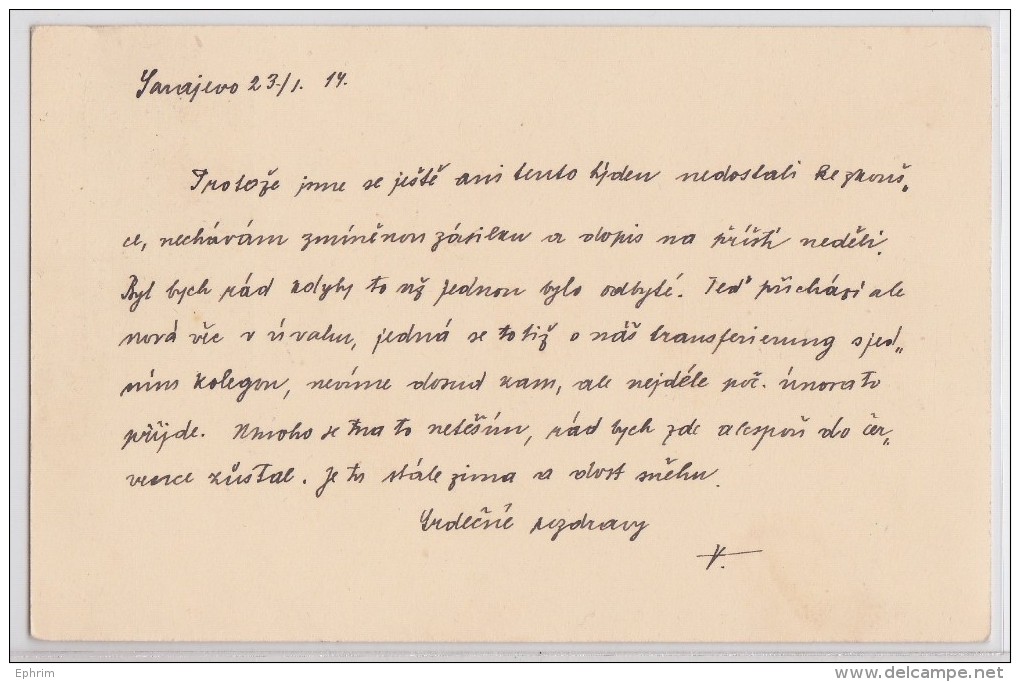 Sarajevo 23/1. 14.
Protože jsme se ještě ani tento týden nedostali ke zkouš„
ce, nechávám zmíněnou zásilku a dopis na příští neděli.
Byl bych rád kdyby to už jednou bylo odbyté. Teď přichází ale
nová věc v úvahu, jedná se totiž o náš transferierung s jed„
ním kolegou, nevíme dosud kam, ale nejdéle poč. února to
přijde. Mnoho se na to netěším, rád bych zde alespoň do čer„
vence zůstal. Je tu stále zima a dost sněhu.
Srdečné pozdravy
V.
Ephrim
www.delcampe.net